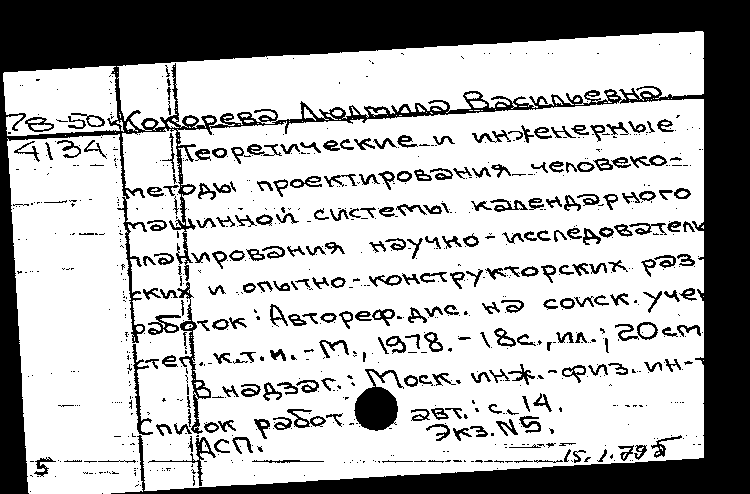 78-50к Кокорева, Людмила Васильевна.
4134 Теоретические и инженерные
методы проектирования человеко-
машинной системы календарного
планирования научно-исследователь
ских и опытно-конструкторских раз-
работок: Автореф. дис. на соиск. учен
степ. к.т.н. - М., 1978. - 18с., ил.; 20см
В надзаг.: Моск. инж.-физ. ин-т
Список работ авт.: с. 14.
АСП. Экз. N5.
5 15.1.79